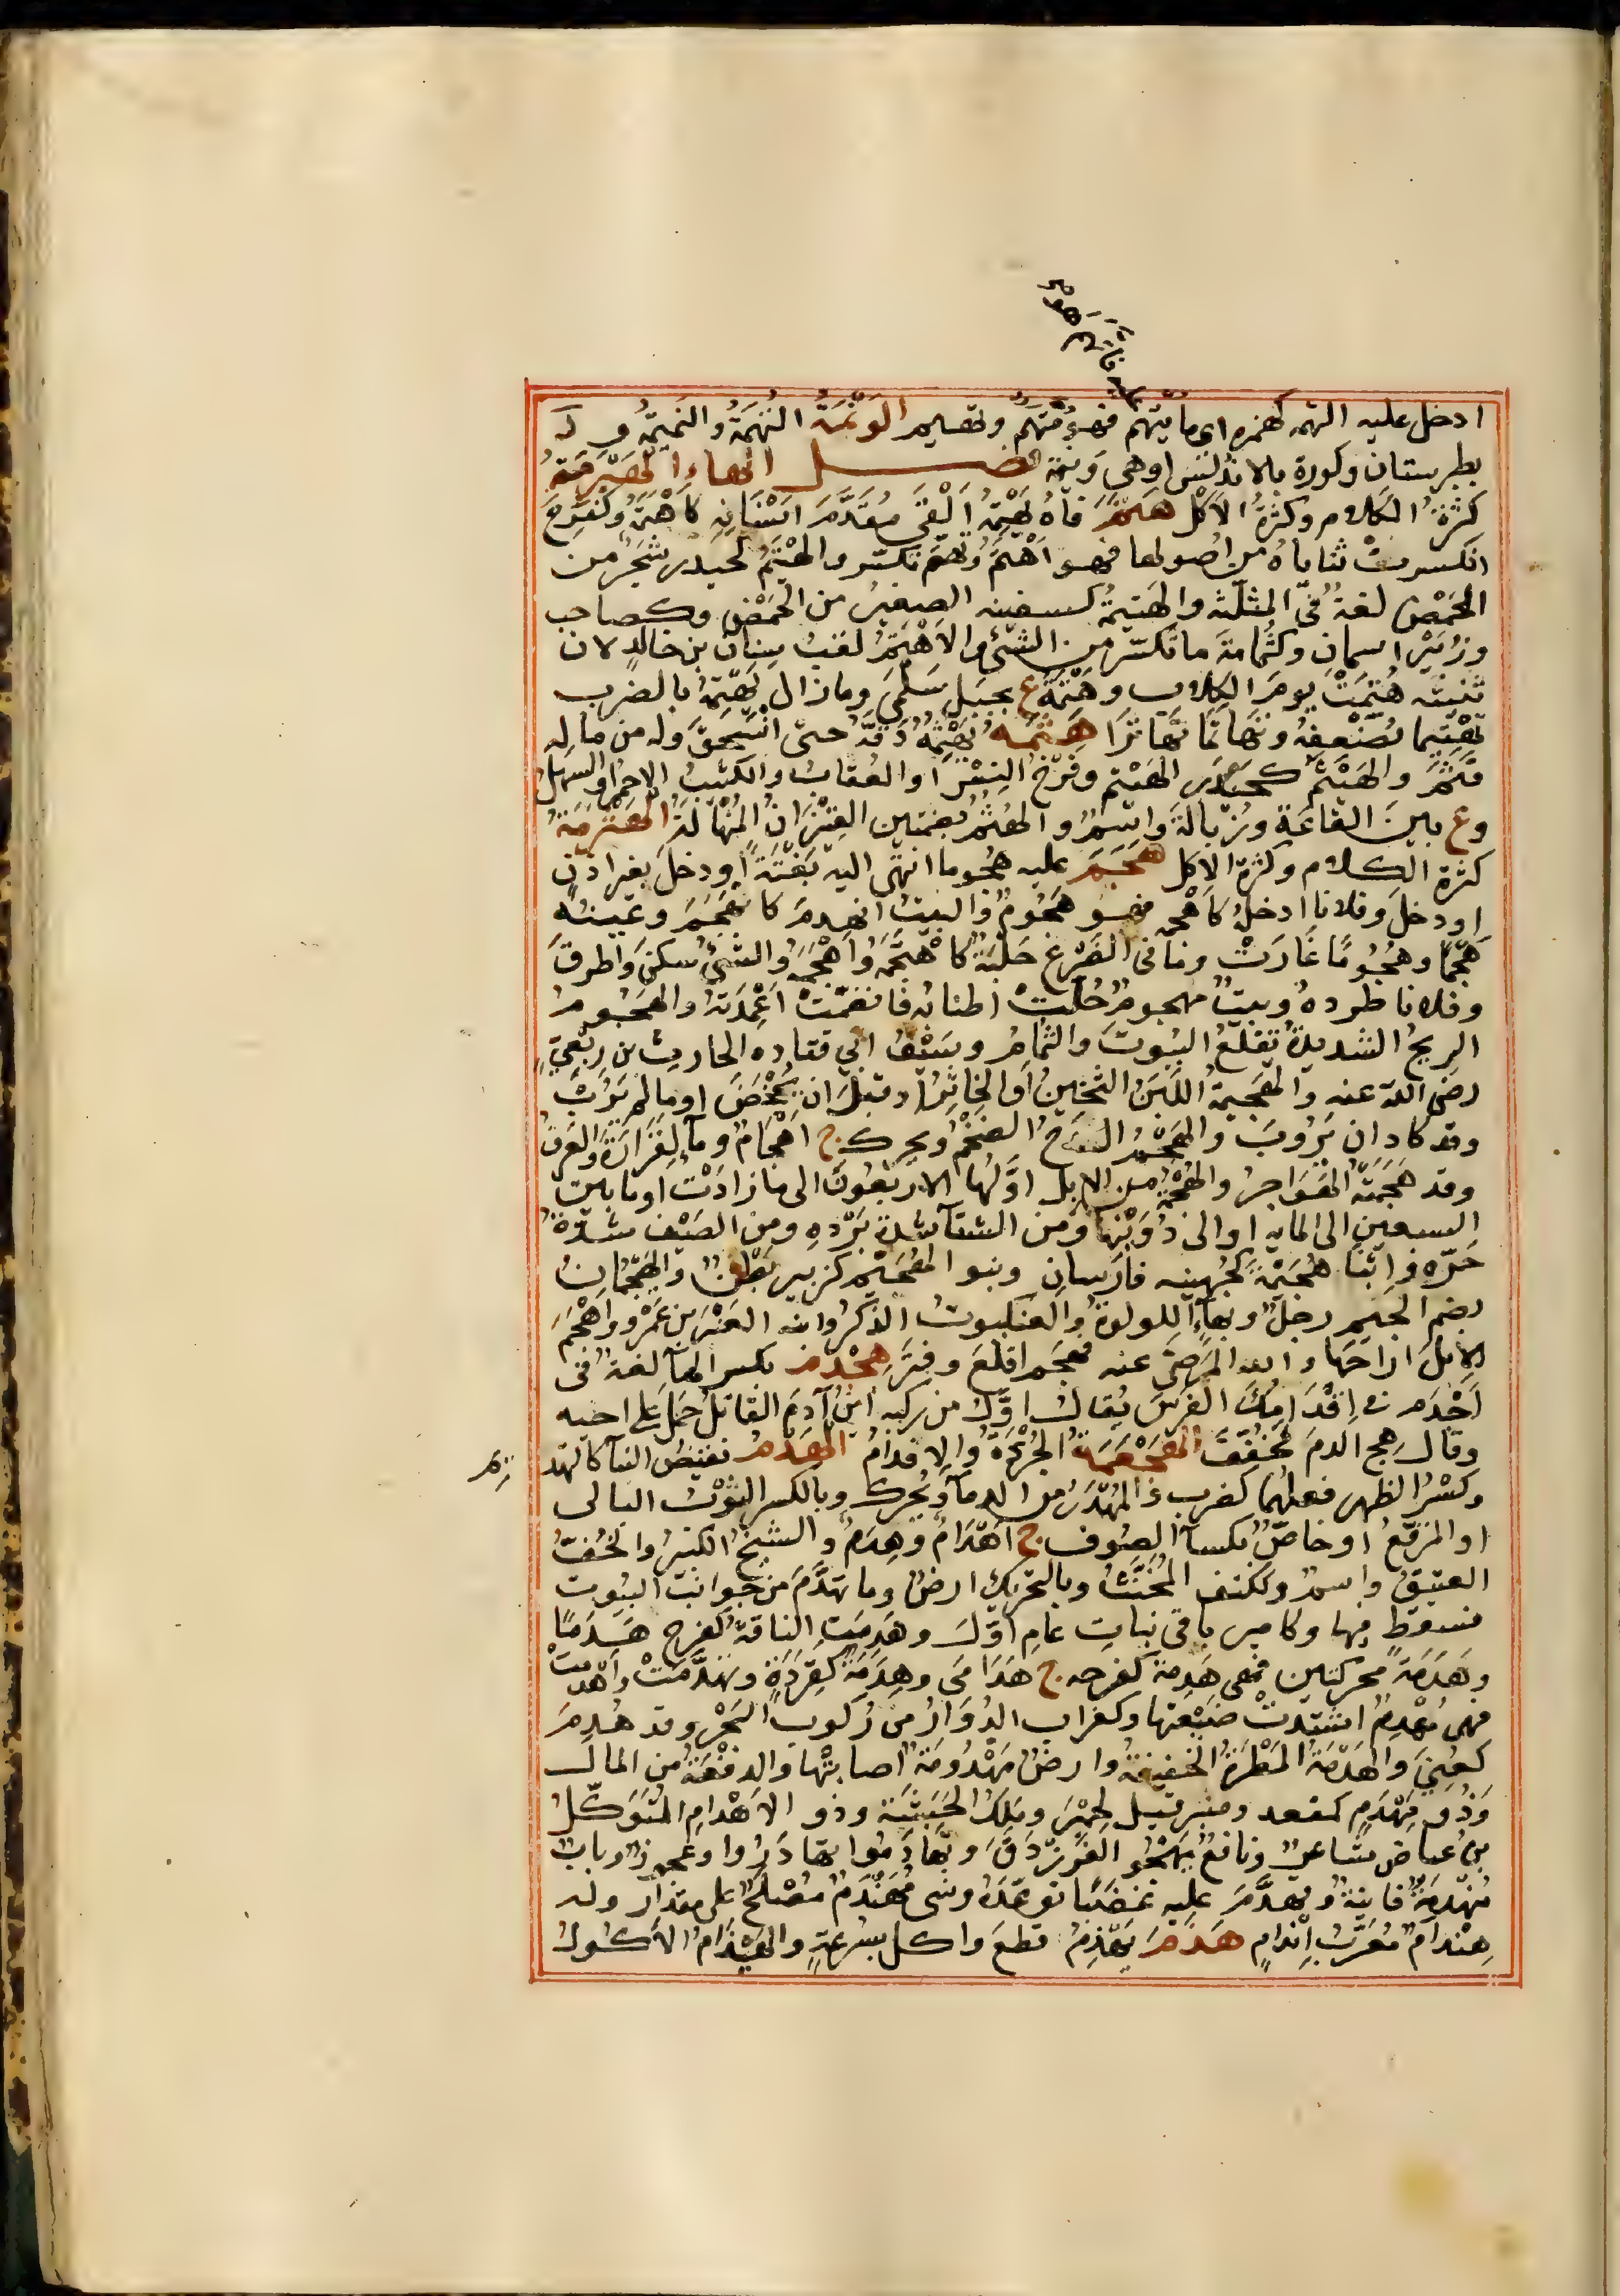 فاتهم هو
ادخل عليه التهمه كهمزه اى ما يتهم فهو متهم وتهيم الونمة النهمة والنميمة وله
بطبرستان وكورة بالاندلس او هى وبمة فصل الهاء الهبرمة
كثرة الكلام وكثرة الاكل هتم فاه يهتمه القى مقدم اسنانه كاهتمه وكفرح
انكسرت ثناياه من اصولها فهو اهتم وتهتم تكسر والهيتم كحيدر شجر من
الحمض لغة فى المثلثة والهتيمة كسفينه الصغير من الحمض وكصاحب
وزبير اسمان وكثمامة ما تكسر من الشئ والاهتم لقب سنان بن خالد لان
ثنيته هتمت يوم الكلاب وهتمة ع بجبل سلمى وما زال يهتمه بالضرب
تهتيما يضعفه وتهاتما تهاترا هثمه يهثمه دقه حتى انسحق وله من ماله
قثم والهيثم كحيدر الهيتم وفرخ النسر او العقاب والكثيب الاحمر او السهل
وع بين القاعة وزبالة واسم والهثم بضمتين القيزان المنهالة الهثرمة
كثرة الكلام وكثرة الاكل هجم عليه هجوما انتهى اليه بغتة او دخل بغير اذن
او دخل وفلانا ادخله كاهجمه فهو هجوم والبيت انهدم كانهجم وعينه
هجما وهجوما غارت وما فى الضرع حلبه كاهتجمه واهجمه والشئ سكن واطرق
وفلانا طرده وبيت مهجوم حلت اطنابه فانضمت اعمدته والهجوم
الريح الشديدة تقلع البيوت والثمام وسيف ابى قتاده الحارث بن ربعى
رضى الله عنه والهجيمة اللبن الثخين او الخاثر او قبل ان يمخض او ما لم يرب
وقد كاد ان يروب والهجم القدح الضخم ويحرك ج اهجام ومآء لفزارة والعرق
وقد هجمته الهواجر والهجمة من الابل اولها الاربعون الى ما زادت او ما بين
السبعين الى المايه او الى دوينها ومن الشتآ شدة برده ومن الصيف شدة
حره وابنا هجيمة كجهينه فارسان وبنو الهجيم كزبير بطن والهيجمان
بضم الجيم رجل وبهآء اللولوة والعنكبوت الذكر وابنه العنبر بن عمرو واهجم
الابل اراحها والله المرض عنه فهجم اقلع وفتر هجدم بكسر الهآ لغة فى
اجدم فى اقدامك الفرس يقال اول من ركبه ابن آدم القاتل حمل على اخيه
وقال هج الدم مخففا الهجعمة الجراة والاقدام الهدم نقيض البنآ كالتهديم
وكسر الظهر فعلهما كضرب والمهدر من الدمآ ويحرك وبالكسر الثوب البالى
او المرقع او خاص بكسآ الصوف ج اهدام وهدم والشيخ الكبير والخف
العتيق واسم وككتف المخنث وبالتحريك ارض وما تهدم من جوانب البيوت
فسقط فيها وكامير باقى نبات عام اول وهدمت الناقة كفرح هدما
وهدمة محركتين فهى هدمة كفرحه ج هدامى وهدمة كقردة وتهدمت واهدمت
فهى مهدم اشتدت ضبعتها وكغراب الدوار من ركوب البحر وقد هدم
كعنى والهدمة المطرة الخفيفة وارض مهدومة اصابتها والدفعة من المال
وذو مهدم كمقعد ومنبر قيل لحمير وملك الحبشة وذو الاهدام المتوكل
بن عياض شاعر ونافع يهجو الفرزدق وتهادموا تهادروا وعجوز وناب
متهدمة فانية وتهدم عليه غضبا توعده وشى مهندم مصلح على مقدار وله
هندام معرب اندام هذم يهذم قطع واكل بسرعة والهيذام الاكول